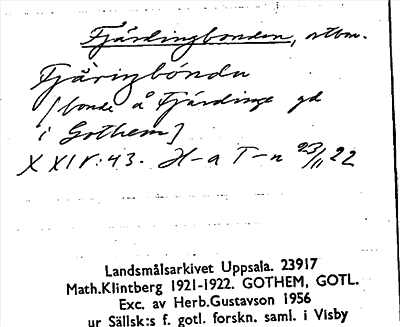 Fjärdingbonden, ortbn.
Fjäringbóndu
[bonde å Fjärdinge gd
i Gothem]
XXIV:43. H-a T-n 23/11 22
Landsmålsarkivet Uppsala. 23917
Math.Klintberg 1921-1922. GOTHEM, GOTL.
Exc. av Herb.Gustavson 1956
ur Sällsk:s f. gotl. forskn. saml. i Visby